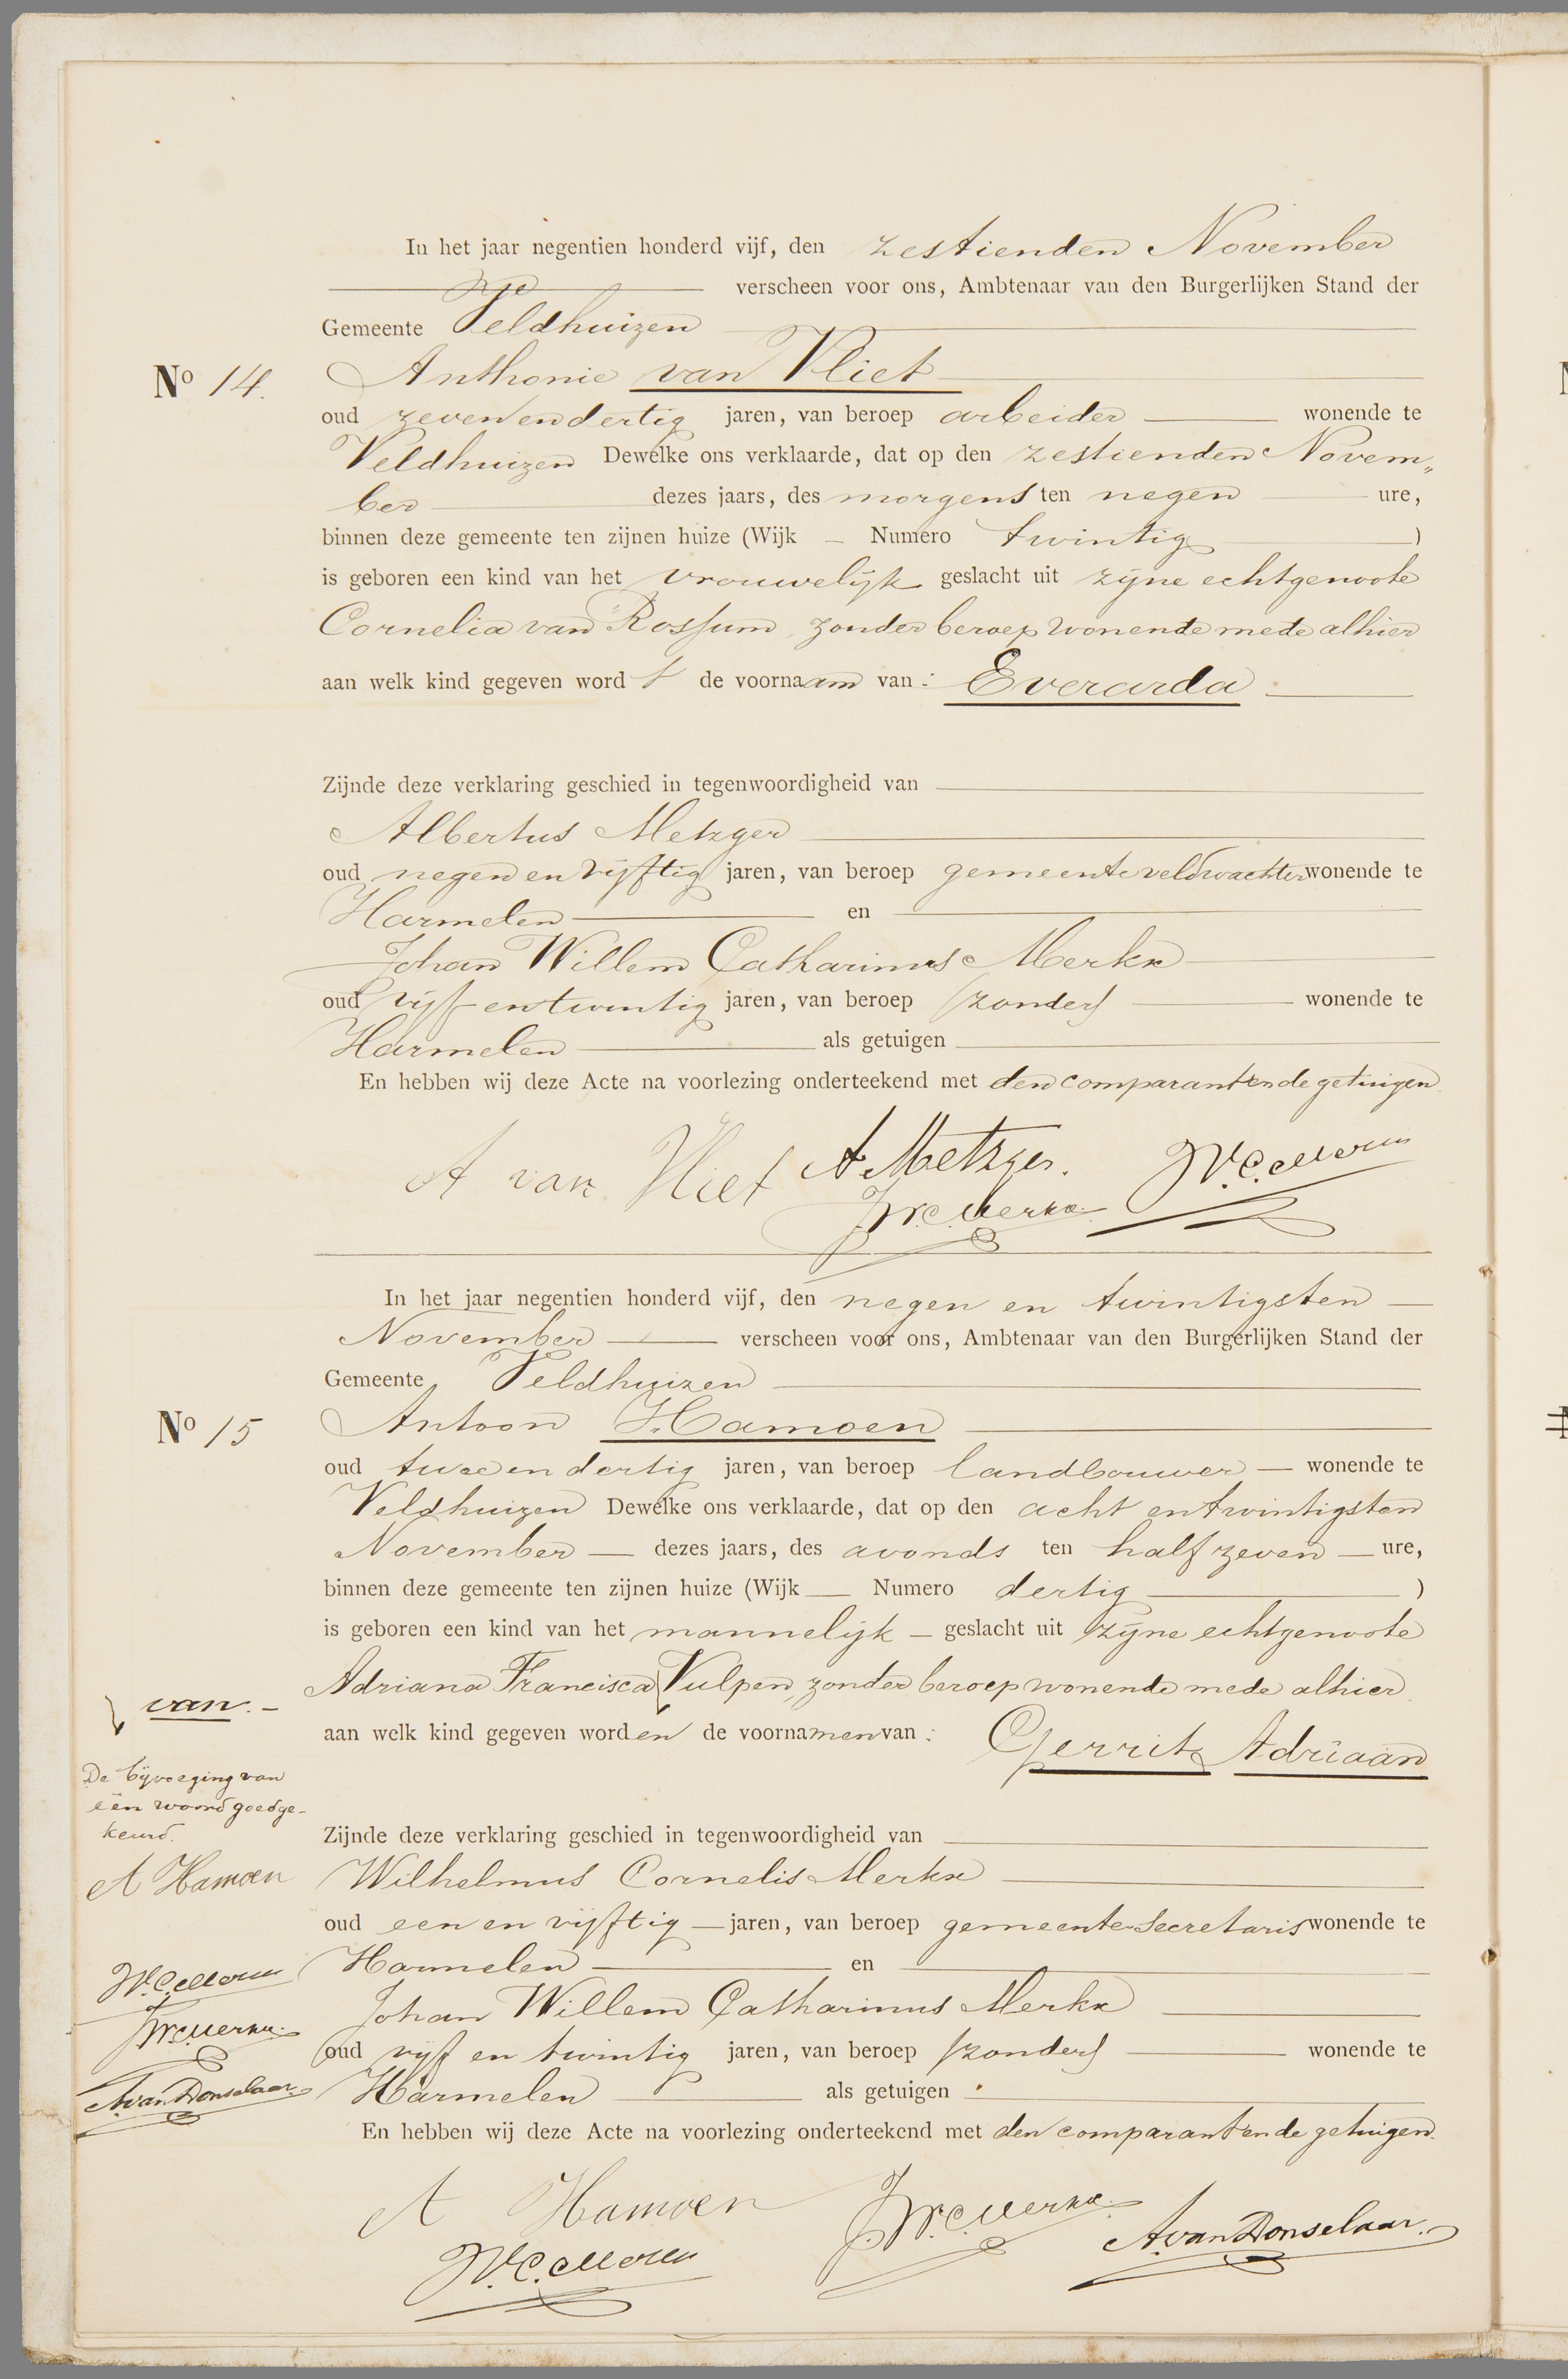 In het jaar negentien honderd vijf, den zestienden November
verscheen voor ons, Ambtenaar van den Burgerlijken Stand der
Gemeente Veldhuizen
No 14. Anthonie van Vliet
oud zeven en dertig jaren, van beroep arbeider wonende te
Veldhuizen Dewelke ons verklaarde, dat op den zestienden Novem„
ber dezes jaars, des morgens ten negen ure,
binnen deze gemeente ten zijnen huize (Wijk — Numero twintig )
is geboren een kind van het vrouwelijk geslacht uit zijne echtgenoote
Cornelia van Rossum, zonder beroep wonende mede alhier
aan welk kind gegeven wordt de voornaam van: Everarda
Zijnde deze verklaring geschied in tegenwoordigheid van
Albertus Metzger
oud negen en vijftig jaren, van beroep gemeenteveldwachter wonende te
Harmelen en
Johan Willem Catharinus Merkx
oud vijf en twintig jaren, van beroep /zonder/ wonende te
Harmelen als getuigen
En hebben wij deze Acte na voorlezing onderteekend met den comparant en de getuigen.
A van Vliet A. Metzger. W.C. Merkx
J.W.C. Merkx.
In het jaar negentien honderd vijf, den negen en twintigsten
November verscheen voor ons, Ambtenaar van den Burgerlijken Stand der
Gemeente Veldhuizen
No 15 Antoon Hamoen
oud twee en dertig jaren, van beroep landbouwer wonende te
Veldhuizen Dewelke ons verklaarde, dat op den acht en twintigsten
November dezes jaars, des avonds ten half zeven ure,
binnen deze gemeente ten zijnen huize (Wijk — Numero dertig )
is geboren een kind van het mannelijk geslacht uit zijne echtgenoote
Adriana Francisca Vulpen, zonder beroep wonende mede alhier.
van.-
aan welk kind gegeven worden de voornamen van: Gerrit Adriaan
De bijvoeging van
één woord goedge-
keurd.
A Hamoen
W.C. Merkx
J.W.C. Merkx.
A. van Donselaar
Zijnde deze verklaring geschied in tegenwoordigheid van
Wilhelmus Cornelis Merkx
oud een en vijftig jaren, van beroep gemeente-Secretaris wonende te
Harmelen en
Johan Willem Catharinus Merkx
oud vijf en twintig jaren, van beroep /zonder/ wonende te
Harmelen als getuigen
En hebben wij deze Acte na voorlezing onderteekend met den comparant en de getuigen.
A Hamoen J.W.C. Merkx.
W.C. Merkx A. van Donselaar.